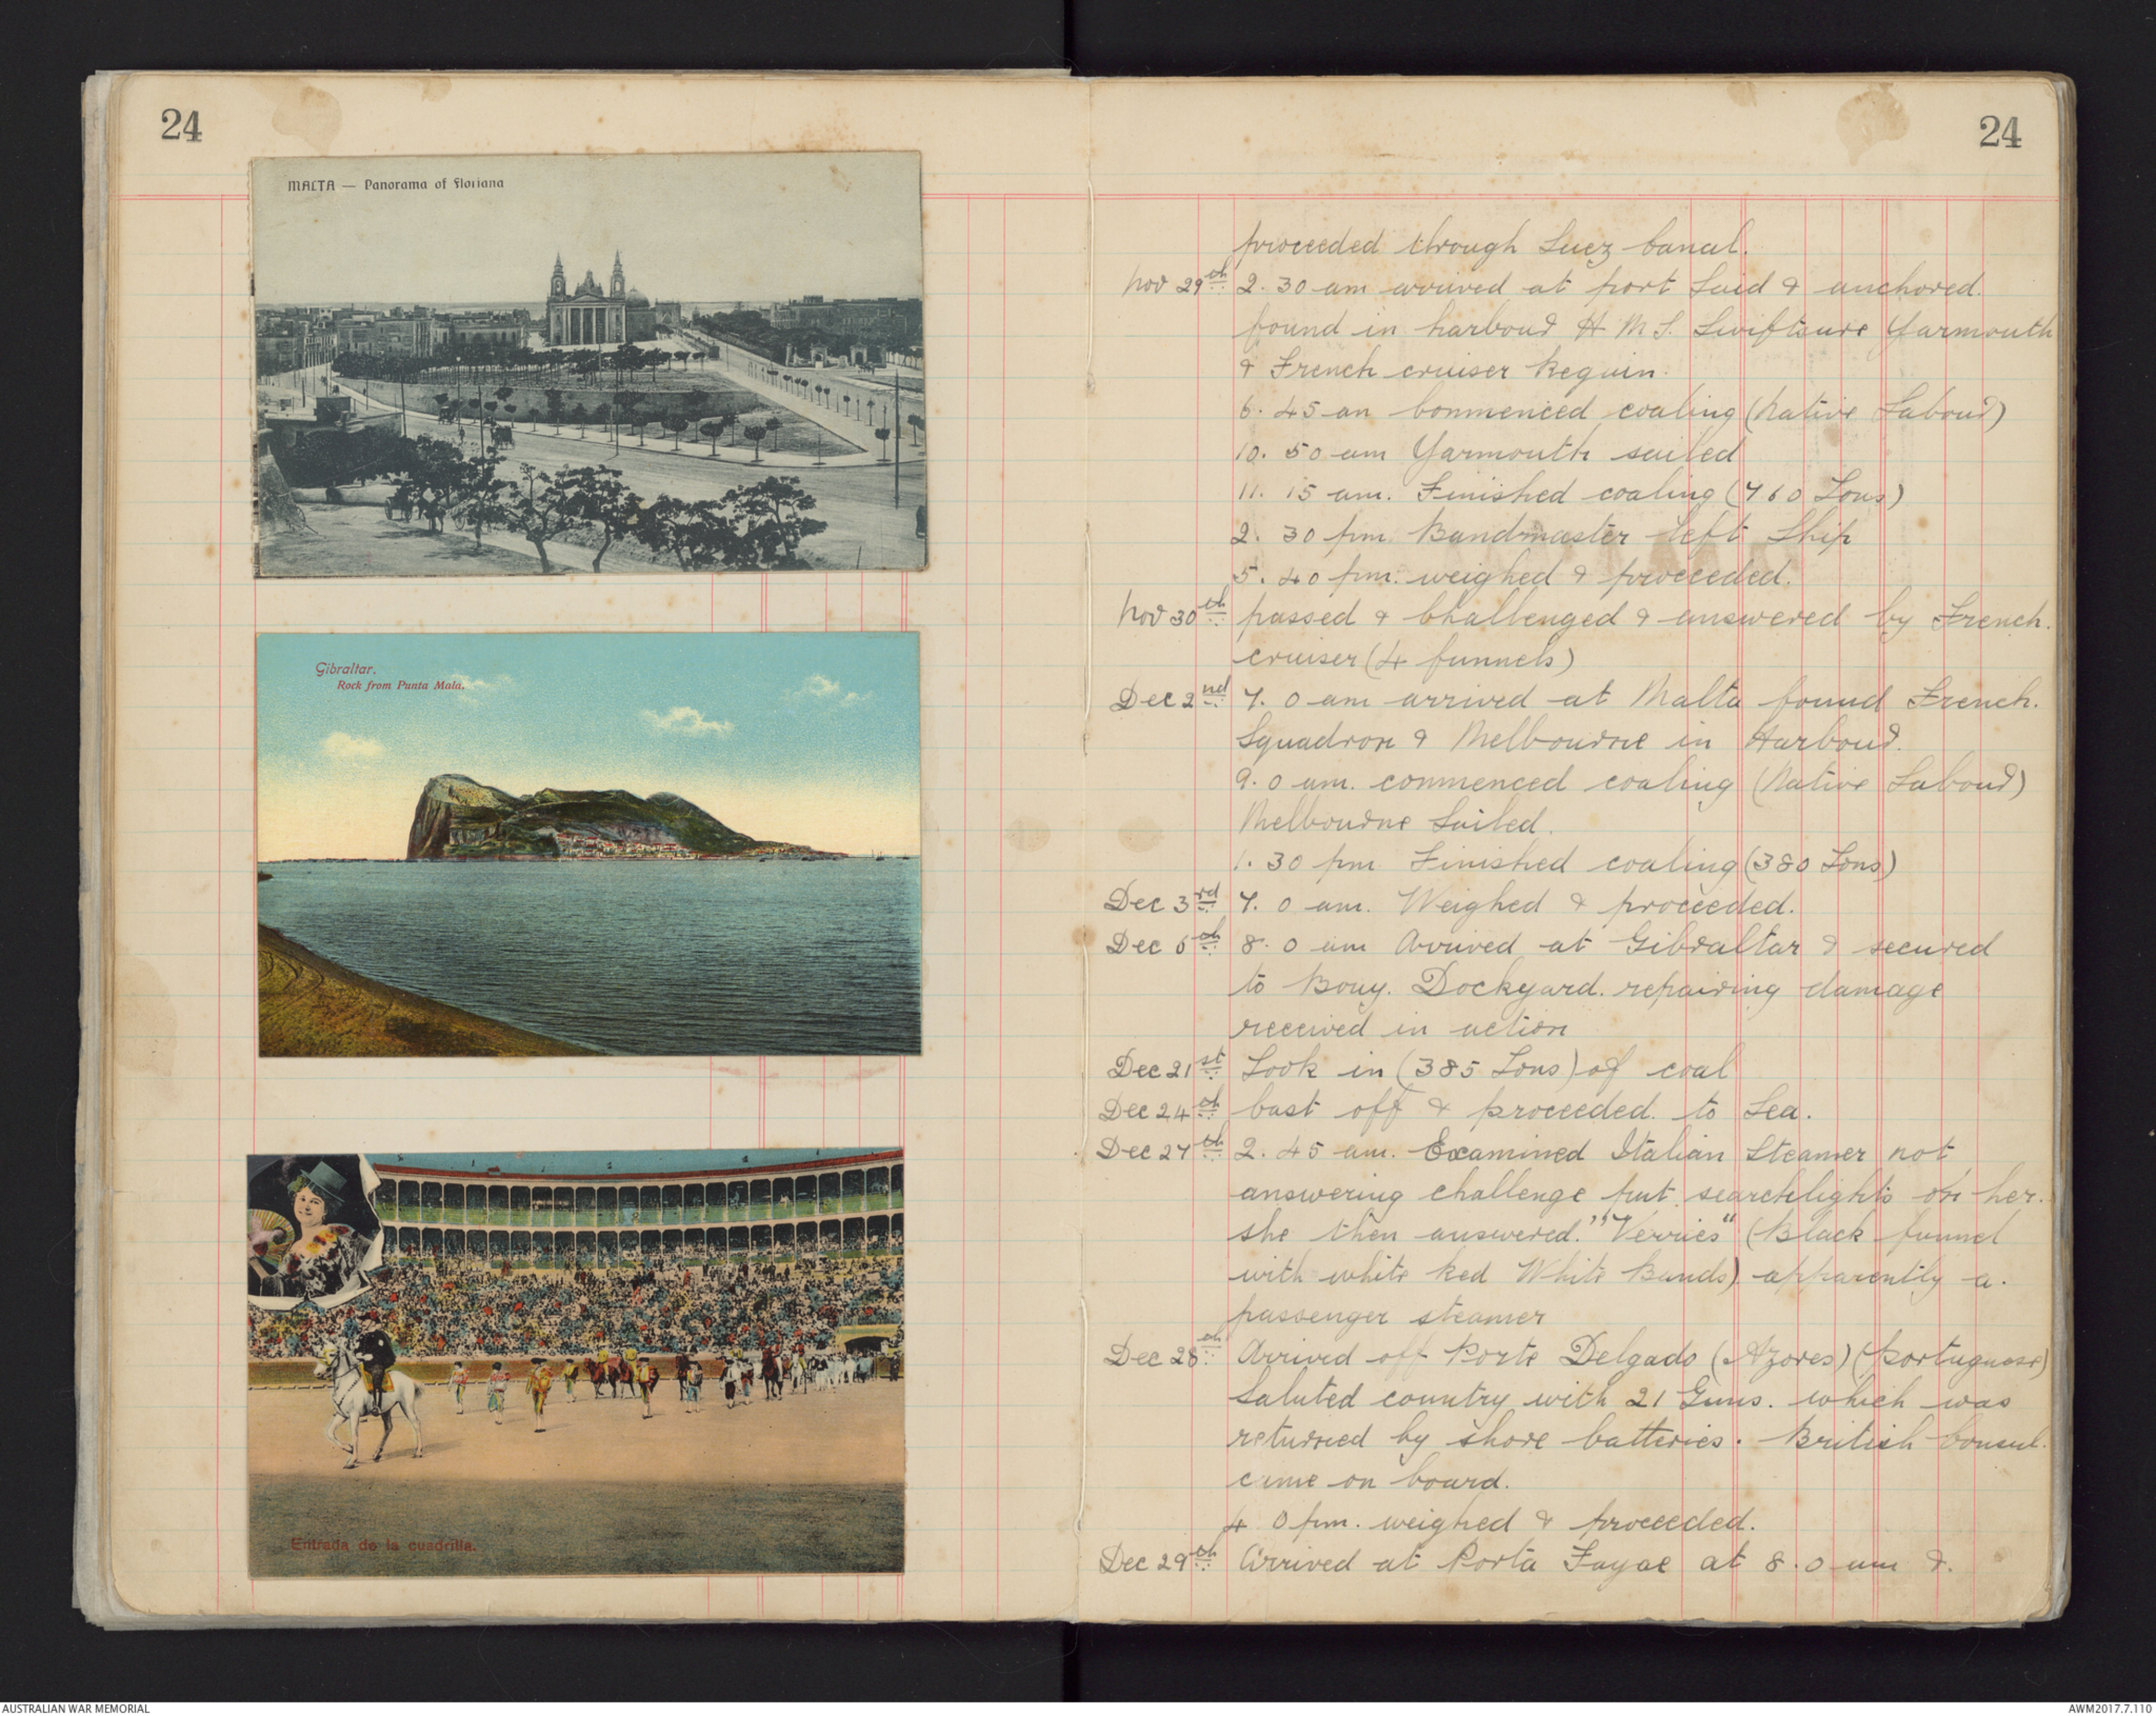 24
MALTA — Panorama of Floriana
Gibraltar.
Rock from Punta Mala.
Entrada de la cuadrilla.
24
proceeded through Suez Canal.
Nov 29th 2. 30 am arrived at port Said & anchored.
found in harbour H M S. Swiftsure Yarmouth
& French cruiser Requin.
6. 45 am Commenced coaling (Native Labour)
10. 50 am Yarmouth sailed
11. 15 am. Finished coaling (760 Tons)
2. 30 pm Bandmaster left Ship
5. 40 pm. weighed & proceeded.
Nov 30th passed & Challenged & answered by French.
cruiser (4 funnels)
Dec 2nd 7. 0 am arrived at Malta found French.
Squadron & Melbourne in Harbour.
9. 0 am. commenced coaling (Native Labour)
Melbourne Sailed.
1. 30 pm Finished coaling (380 Tons)
Dec 3rd 7. 0 am. Weighed & proceeded.
Dec th 8. 0 am Arrived at Gibraltar & secured
to Bouy. Dockyard. repairing damage
received in action
Dec 21st Took in (385 Tons) of coal
Dec 24th Cast off & proceeded. to Sea.
Dec 27th 2. 45 am. Examined Italian Steamer not
answering challenge put searchlights on her.
she then answered. "Verries" (Black funnel
with white Red White Bands) apparently a.
passenger steamer
Dec 28th Arrived off Porte Delgado (Azores) (Portuguese)
Saluted country with 21 Guns. which was
returned by shore batteries. British Consul.
came on board.
4. 0 pm. weighed & proceeded.
Dec 29th Arrived at Porta Fayal at 8. 0 am &.
AUSTRALIAN WAR MEMORIAL
AWM2017.7.110